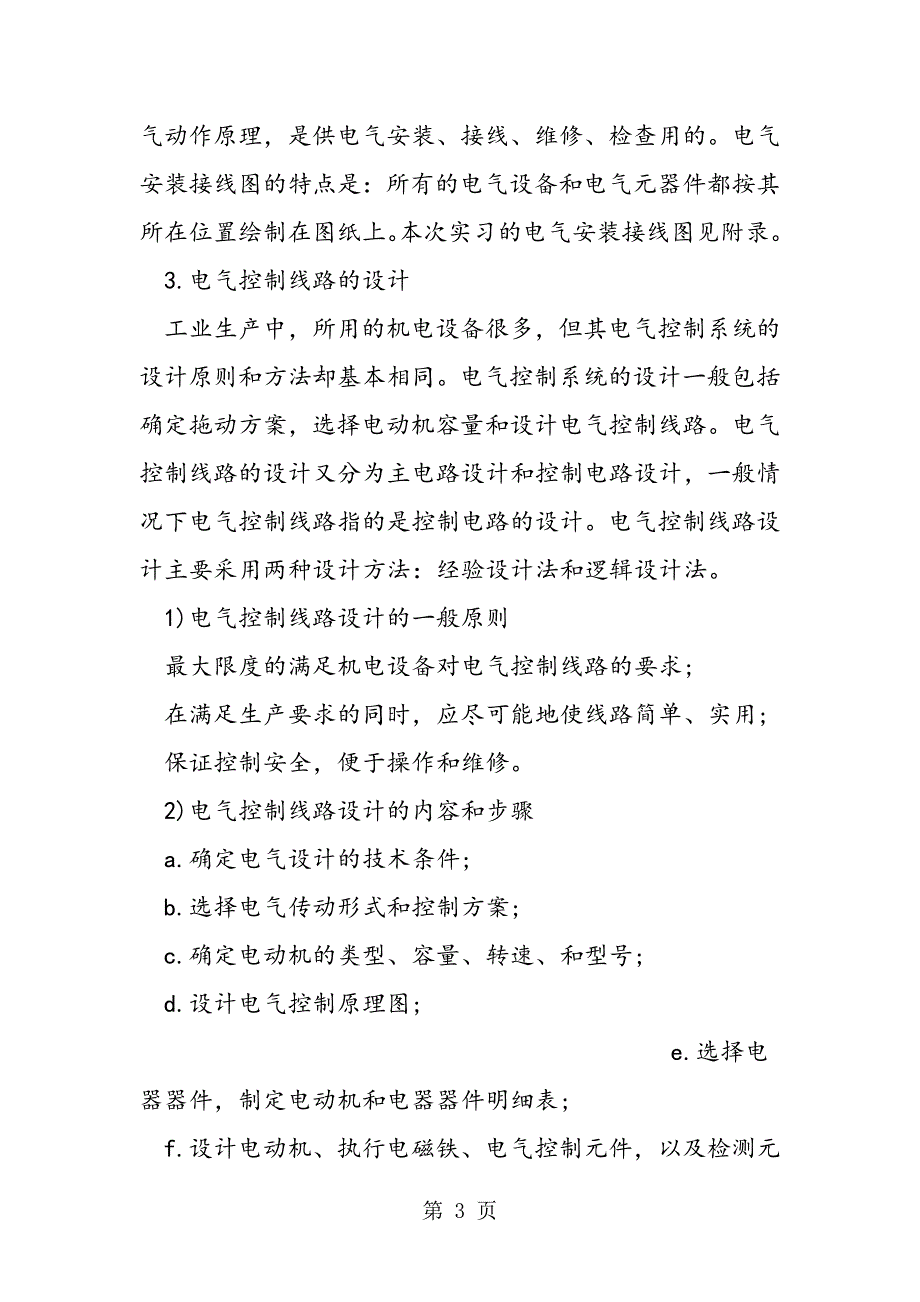 气动作原理，是供电气安装、接线、维修、检查用的。电气
安装接线图的特点是：所有的电气设备和电气元器件都按其
所在位置绘制在图纸上。本次实习的电气安装接线图见附录。
3.电气控制线路的设计
工业生产中，所用的机电设备很多，但其电气控制系统的
设计原则和方法却基本相同。电气控制系统的设计一般包括
确定拖动方案，选择电动机容量和设计电气控制线路。电气
控制线路的设计又分为主电路设计和控制电路设计，一般情
况下电气控制线路指的是控制电路的设计。电气控制线路设
计主要采用两种设计方法：经验设计法和逻辑设计法。
1)电气控制线路设计的一般原则
最大限度的满足机电设备对电气控制线路的要求；
在满足生产要求的同时，应尽可能地使线路简单、实用；
保证控制安全，便于操作和维修。
2)电气控制线路设计的内容和步骤
a.确定电气设计的技术条件；
b.选择电气传动形式和控制方案；
c.确定电动机的类型、容量、转速、和型号；
d.设计电气控制原理图；
e.选择电
器器件，制定电动机和电器器件明细表；
f.设计电动机、执行电磁铁、电气控制元件，以及检测元
第 3 页